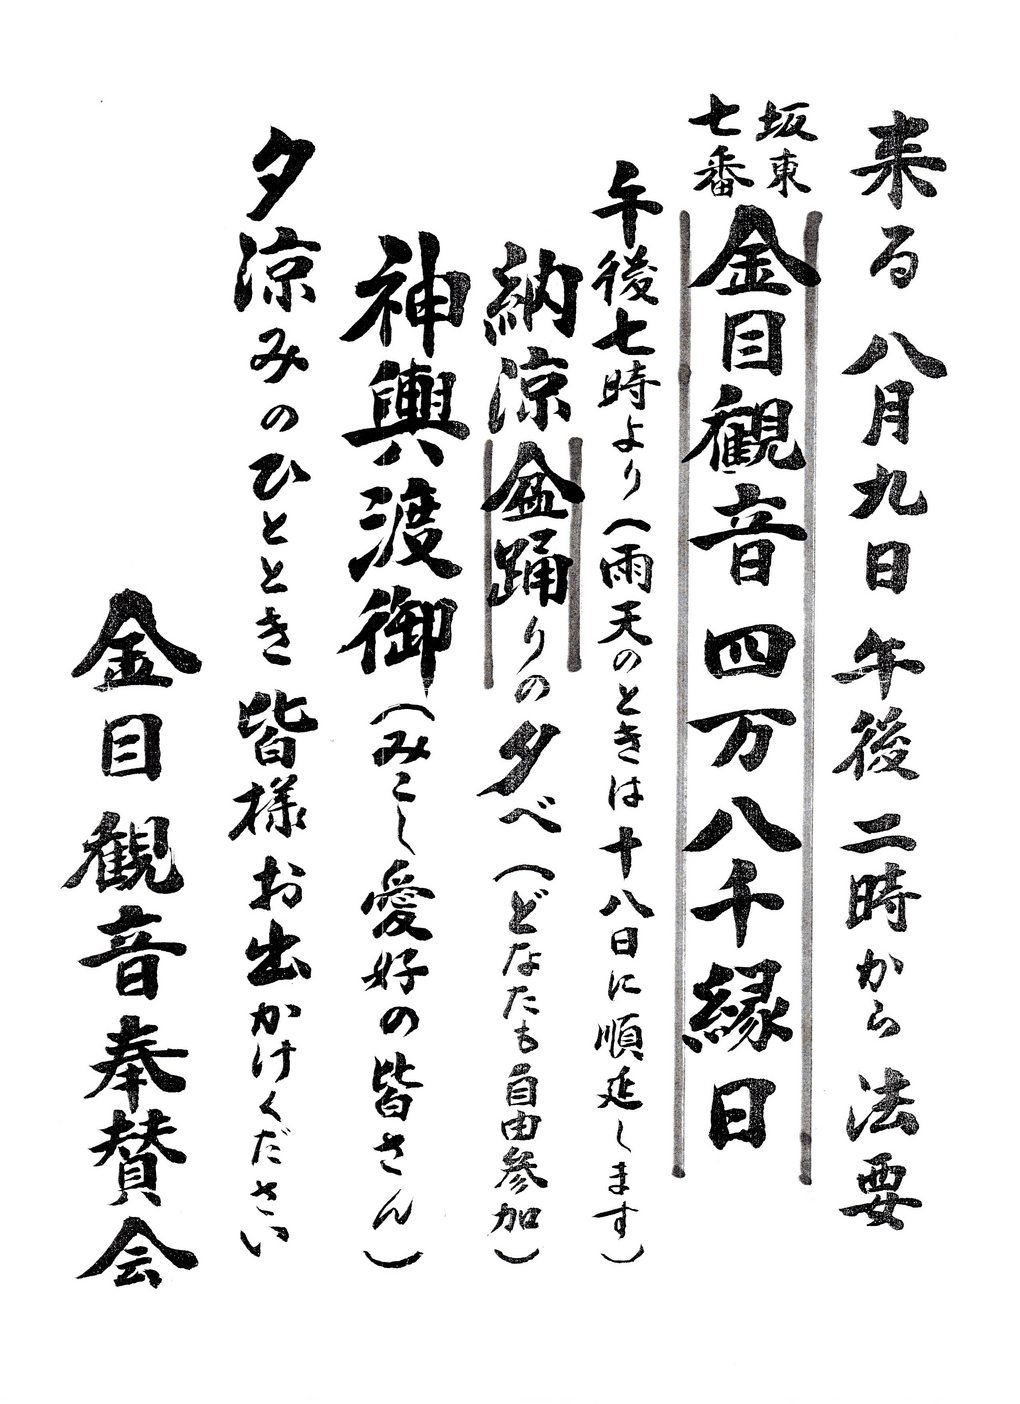 来る 八月九日 午後二時から 法要
坂東
七番
金目観音 四万八千縁日
午後七時より（雨天のときは十八日に順延します）
納涼盆踊りの夕べ（どなたも自由参加）
神輿渡御（みこし愛好の皆さん）
夕涼みのひととき 皆様お出かけください
金目観音奉賛会